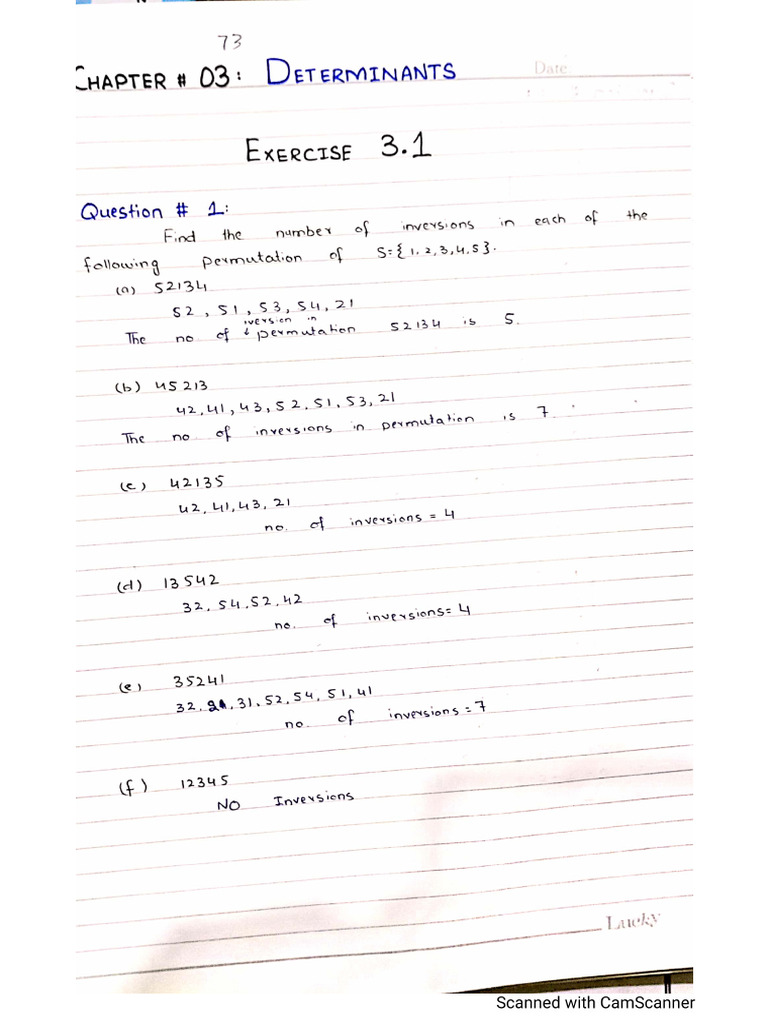 73
CHAPTER # 03: DETERMINANTS
Date:
EXERCISE 3.1
Question # 1:
Find the number of inversions in each of the
following permutation of S={1,2,3,4,5}.
(a) 52134
52, 51, 53, 54, 21
iversion in
The no of ↓ permutation 52134 is 5.
(b) 45213
42,41,43,52,51,53,21
The no of inversions in permutation is 7
(c) 42135
42,41,43,21
no. of inversions = 4
(d) 13542
32, 54, 52, 42
no. of inversions= 4
(e) 35241
32, 21, 31, 52, 54, 51, 41
no. of inversions = 7
(f) 12345
NO Inversions
Lucky
Scanned with CamScanner